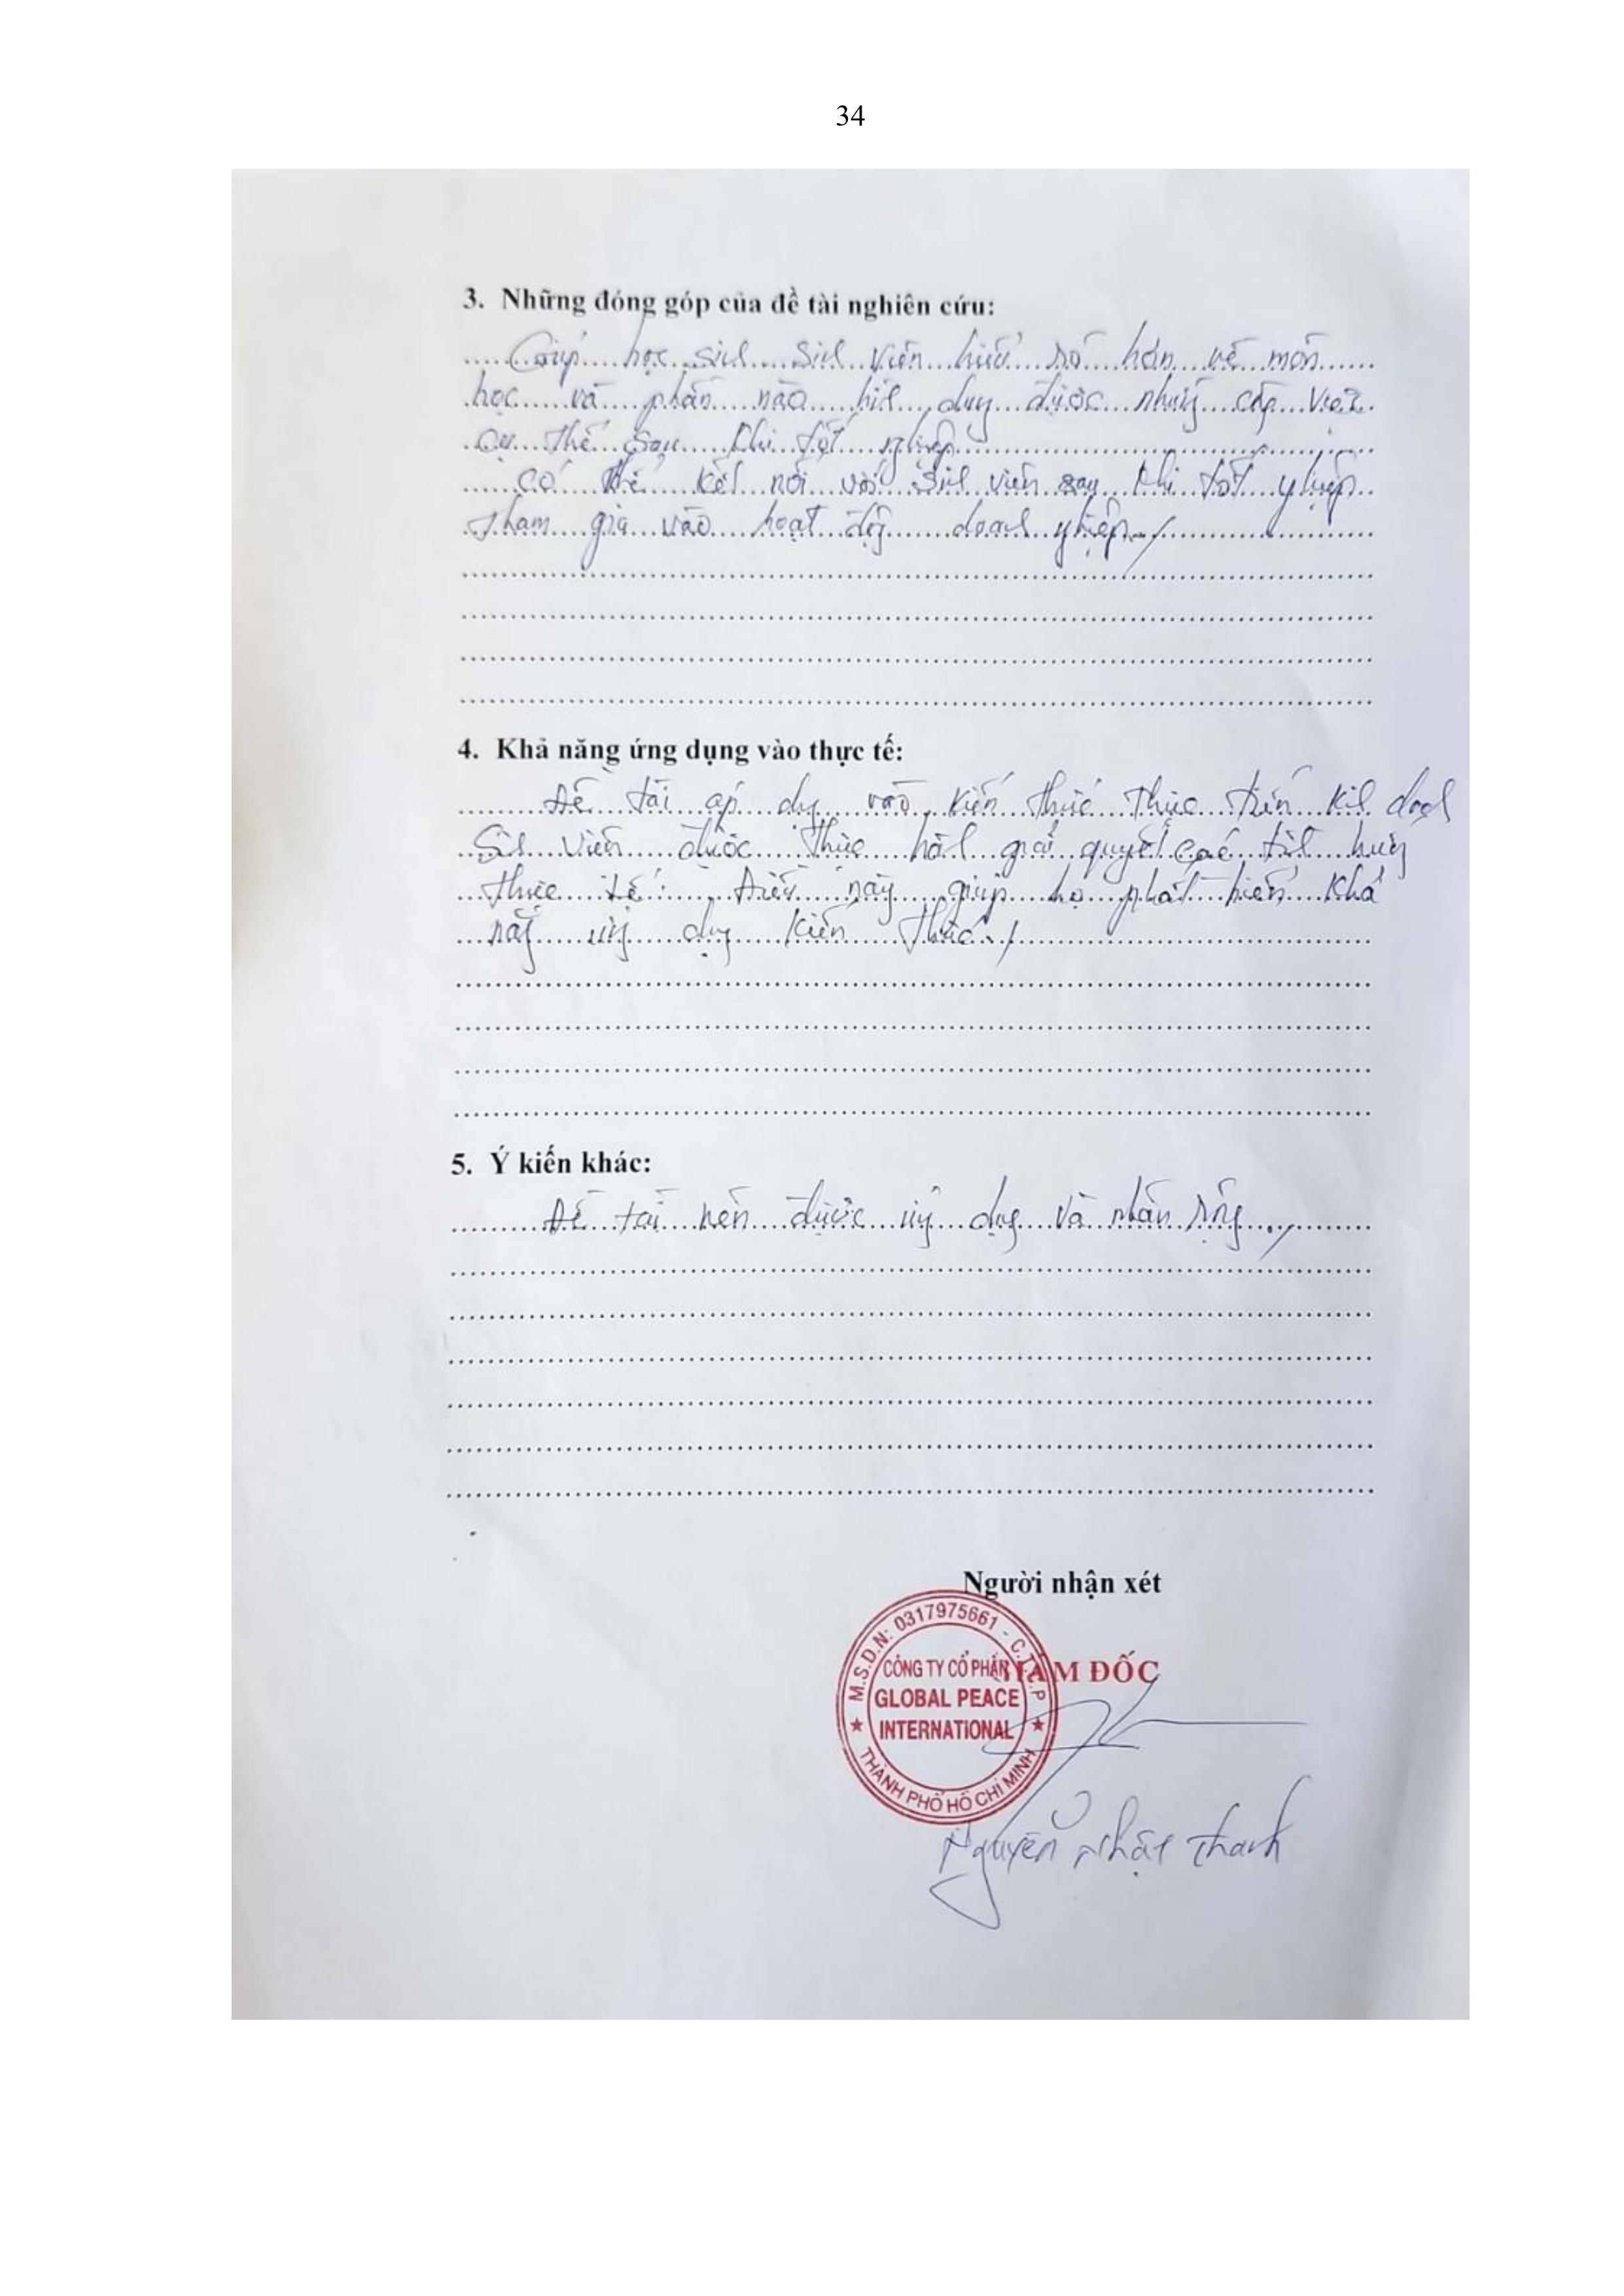 34
3. Những đóng góp của đề tài nghiên cứu:
Giúp học sinh sinh viên hiểu rõ hơn về môn
học và phần nào hình dung được những công việc
cụ thể sau khi tốt nghiệp
có thể kết nối với sinh viên sau khi tốt nghiệp
tham gia vào hoạt động doanh nghiệp./
4. Khả năng ứng dụng vào thực tế:
Đề tài áp dụng vào kiến thức thực tiễn kinh doanh
Sinh viên được thực hành giải quyết các tình huống
thực tế. Điều này giúp họ phát hiện khả
năng ứng dụng kiến thức./
5. Ý kiến khác:
Đề tài nên được ứng dụng và nhân rộng./
Người nhận xét
M.S.D.N: 0317975661 - C.T.C.P
CÔNG TY CỔ PHẦN
GIÁM ĐỐC
GLOBAL PEACE
INTERNATIONAL
THÀNH PHỐ HỒ CHÍ MINH
Nguyễn Nhật Thanh